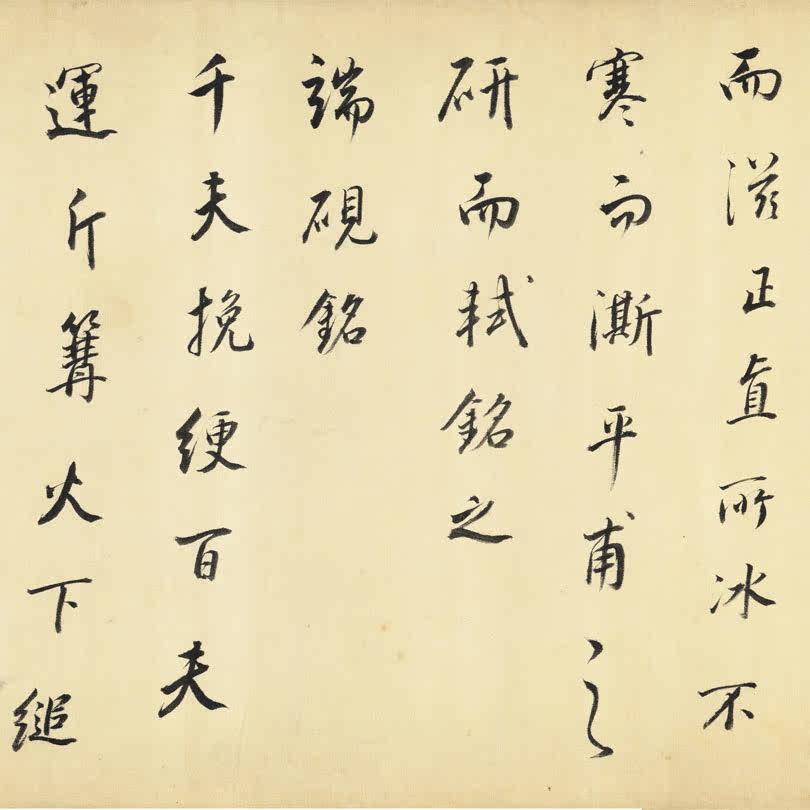 而滋正直所冰不
寒而澌平甫之
研而軾銘之
端硯銘
千夫挽綆百夫
運斤篝火下縋